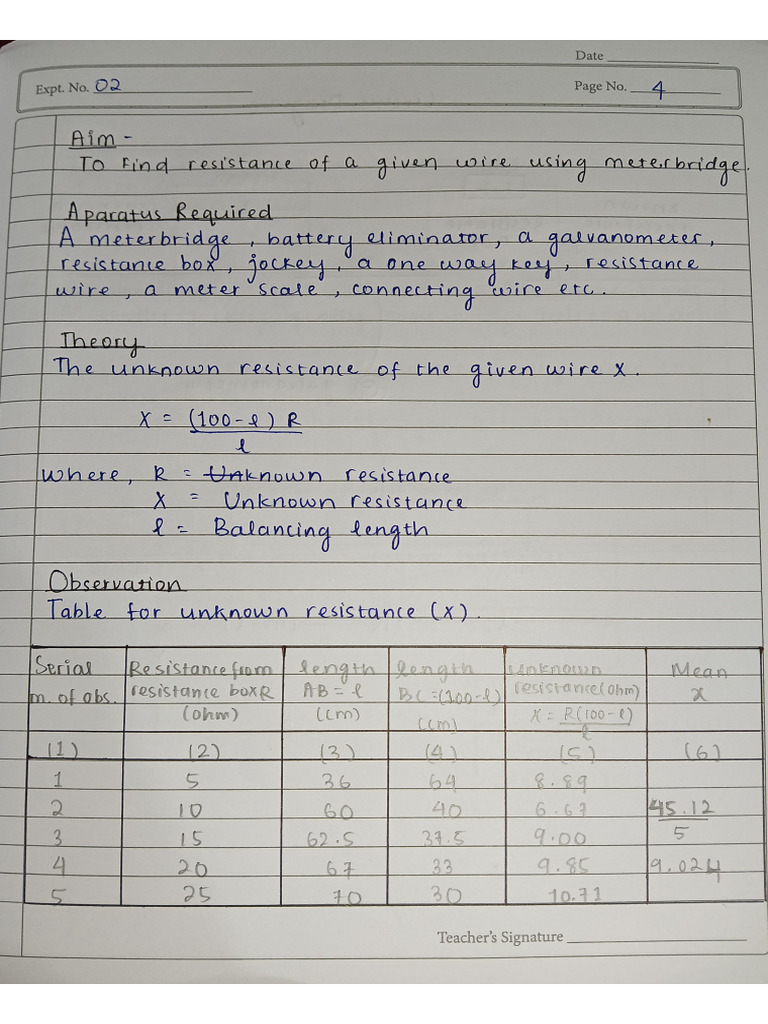 Date
Expt. No. 02
Page No. 4
Aim -
To Find resistance of a given wire using meterbridge.
Aparatus Required
A meterbridge, battery eliminator, a galvanometer,
resistance box, jockey, a one way key, resistance
wire, a meter scale, connecting wire etc.
Theory
The unknown resistance of the given wire X.
X = (100-l) R
l
where, R = Unknown resistance
X = Unknown resistance
l = Balancing length
Observation
Table for unknown resistance (X).
Serial Resistance from length length Unknown Mean
m. of obs. resistance box R AB = l BC = (100-l) resistance (ohm) x
(ohm) (cm) (cm) X = R(100-l)
l
(1) (2) (3) (4) (5) (6)
1 5 36 64 8.89
2 10 60 40 6.67 45.12
3 15 62.5 37.5 9.00 5
4 20 67 33 9.85 9.024
5 25 70 30 10.71
Teacher's Signature